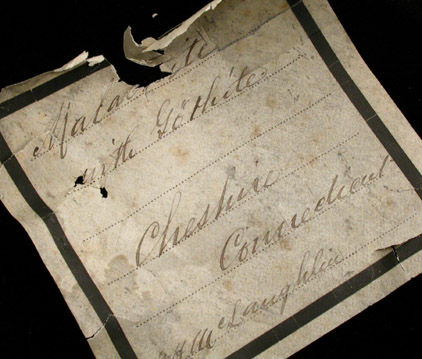 Malachite
with Göthite
Cheshire
Connecticut
McLaughlin